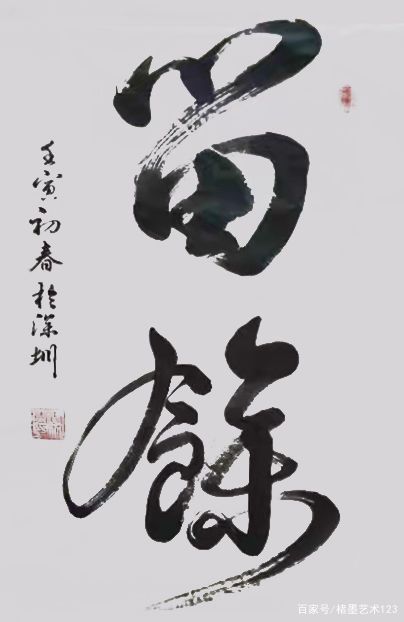 留餘
壬寅初春於深圳
百家号/楮墨艺术123